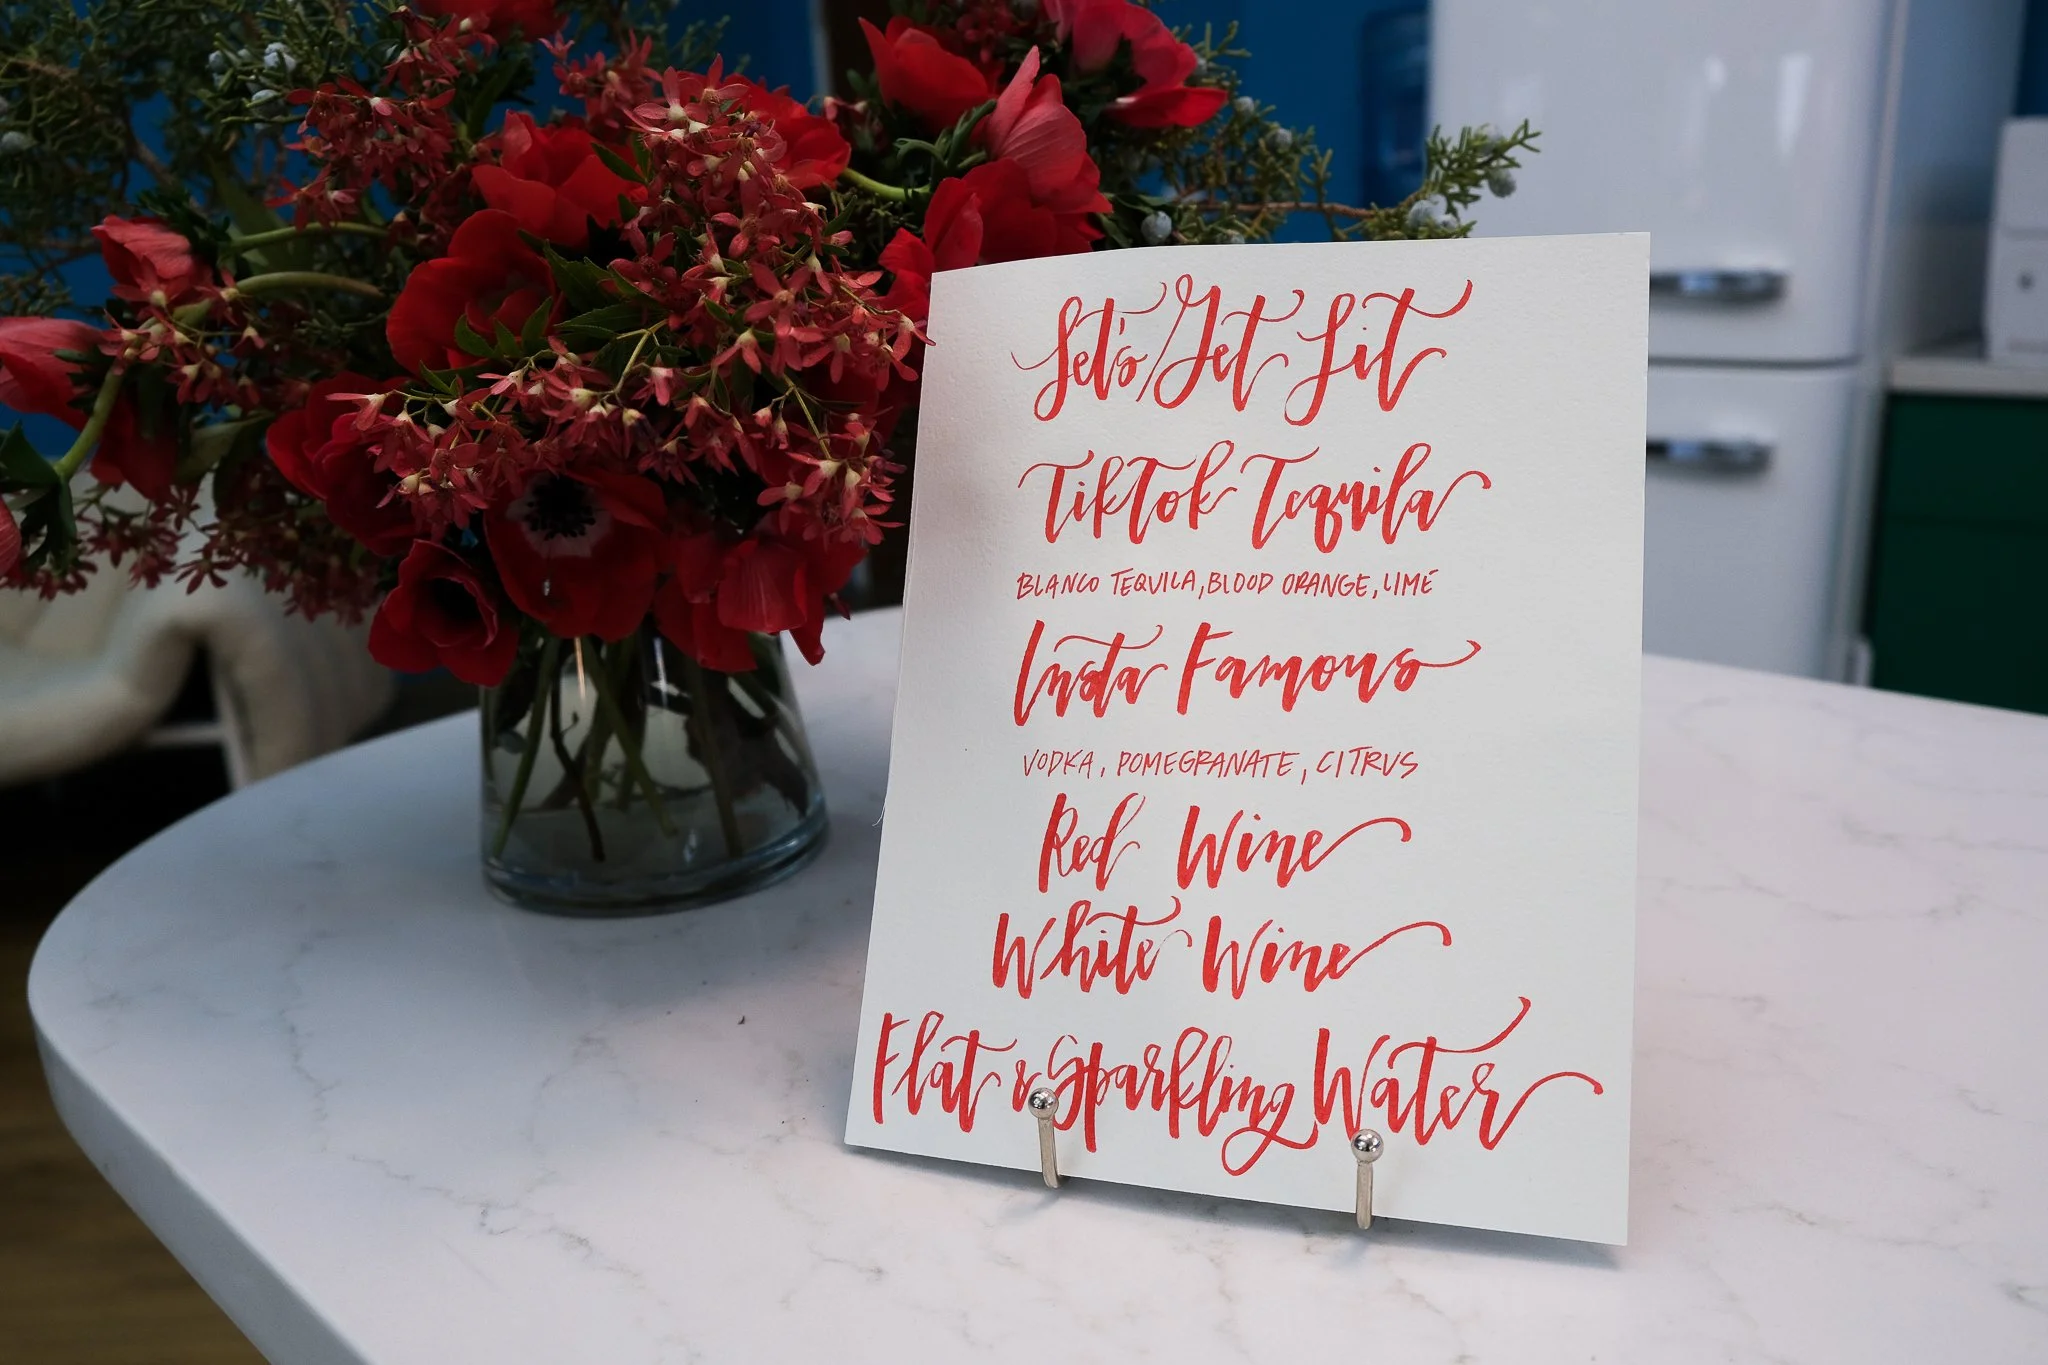 Let's Get Lit
TikTok Tequila
BLANCO TEQUILA, BLOOD ORANGE, LIME
Insta Famous
VODKA, POMEGRANATE, CITRUS
Red Wine
White Wine
Flat & Sparkling Water